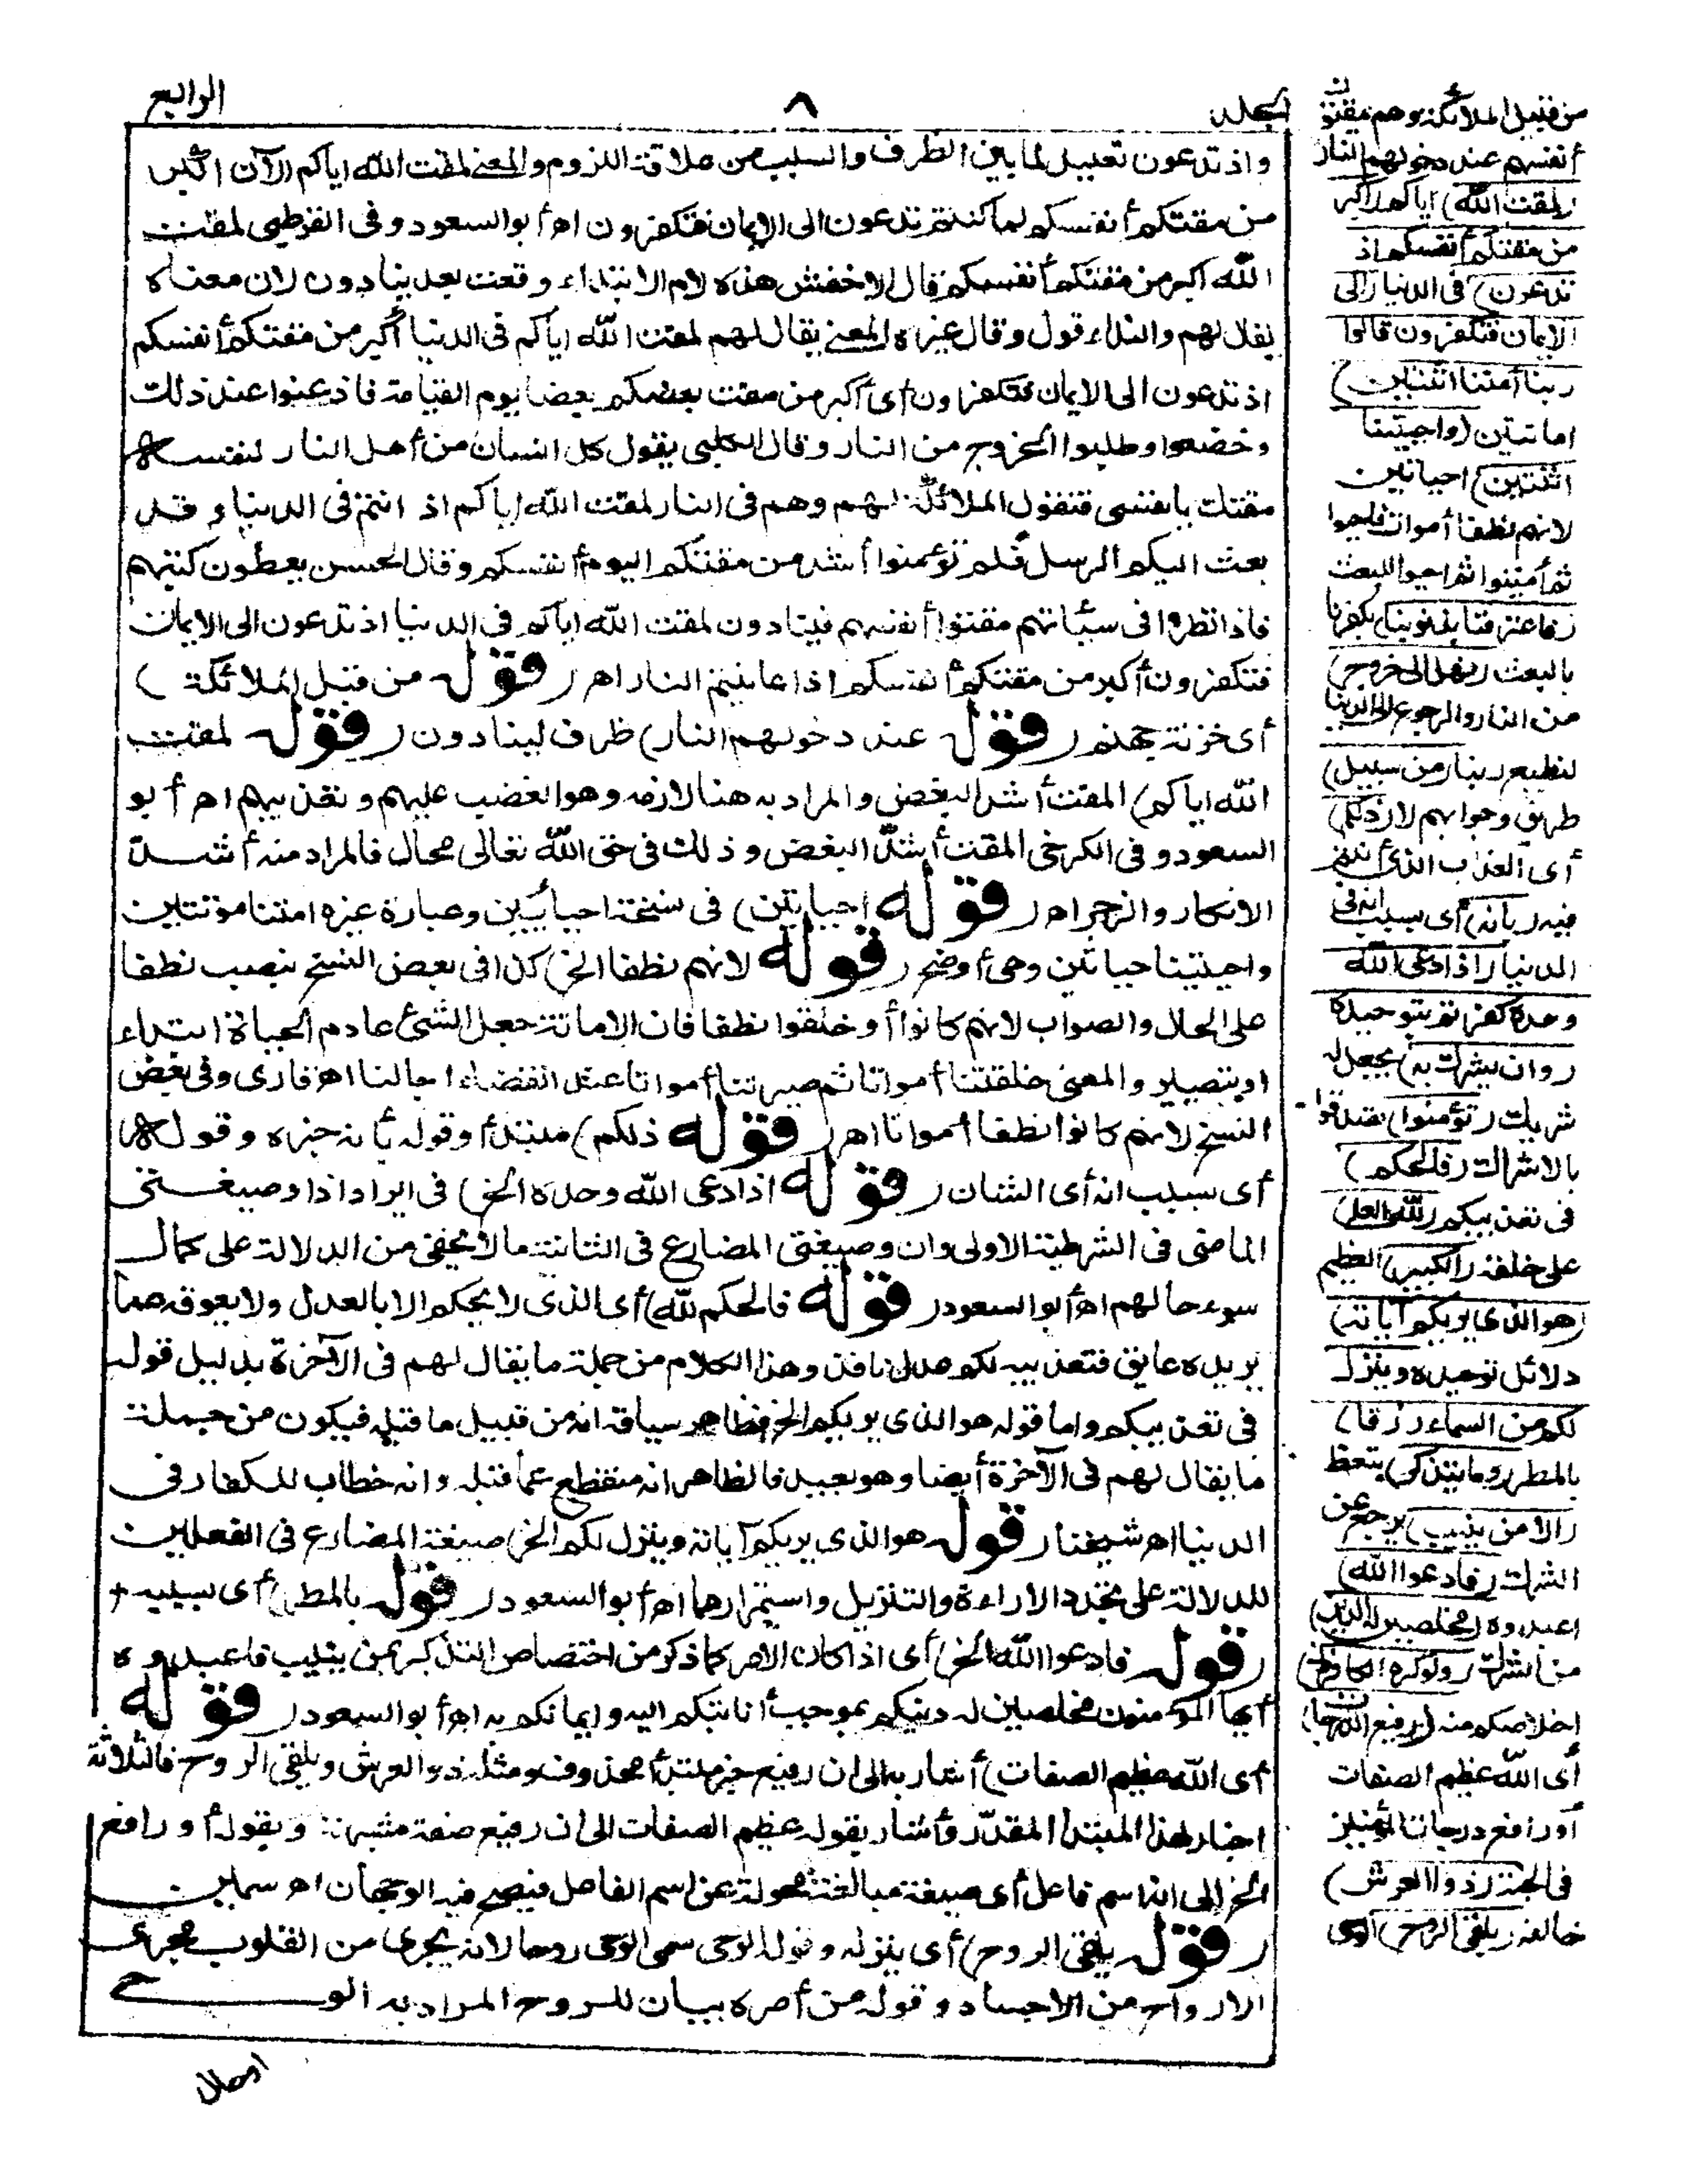 المجلد
٨
الرابع
واذ تدعون تعليل لما بين الظرف والسبب من علاقة اللزوم والمعنى لمقت الله اياكم الآن اكبر
من مقتكم أنفسكم لما كنتم تدعون الى الايمان فتكفرون اه أبو السعود وفى القرطبى لمقت
الله اكبر من مقتكم أنفسكم قال الاخفش هذه لام الابتداء وقعت بعد ينادون لان معناه
يقال لهم والنداء قول وقال غيره المعنى يقال لهم لمقت الله اياكم فى الدنيا أكبر من مقتكم أنفسكم
اذ تدعون الى الايمان فتكفرون أى أكبر من مقت بعضكم بعضا يوم القيامة فاذعنوا عند ذلك
وخضعوا وطلبوا الخروج من النار وقال الكلبى يقول كل انسان من أهل النار لنفسه
مقتك يا نفسى فتقول الملائكة لهم وهم فى النار لمقت الله اياكم اذ انتم فى الدنيا وقد
بعث اليكم الرسل فلم تؤمنوا أشد من مقتكم اليوم أنفسكم وقال الحسن يعطون كتبهم
فاذا نظروا فى سيئاتهم مقتوا أنفسهم فينادون لمقت الله اياكم فى الدنيا اذ تدعون الى الايمان
فتكفرون أكبر من مقتكم أنفسكم اذا عاينتم النار اه (قوله من قبل الملائكة)
أى خزنة جهنم (قوله عند دخولهم النار) ظرف لينادون (قوله لمقت
الله اياكم) المقت أشد البغض والمراد به هنا لازمه وهو الغضب عليهم وتعذيبهم اه أبو
السعود وفى الكرخى المقت أشدّ البغض وذلك فى حق الله تعالى محال فالمراد منه أشدّ
الانكار والزجر اه (قوله احياءتين) فى نسخة احياءين وعبارة غيره امتنا موتتين
واحييتنا حياتين وهى أوضح (قوله لانهم نطفا الخ) كذا فى بعض النسخ بنصب نطفا
على الحال والصواب لانهم كانوا أو خلقوا نطفا فان الاماتة جعل الشئ عادم الحياة ابتداء
او بتصيير والمعنى خلقتنا أمواتا ثم صيرتنا أمواتا عند انقضاء اجالنا اه قارى وفى بعض
النسخ لانهم كانوا نطفا أمواتا اه (قوله ذلكم) مبتدأ وقوله بأنه خبره وقوله
أى بسبب انه أى الشان (قوله اذا دعى الله وحده الخ) فى ايراد اذا وصيغتى
الماضى فى الشرطية الاولى وان وصيغتى المضارع فى الثانية ما لا يخفى من الدلالة على كمال
سوء حالهم اه أبو السعود (قوله فالحكم لله) أى الذى لا يحكم الا بالعدل ولا يعوقه عما
يريده عايق فتعذيبه لكم عدل نافذ وهذا الكلام من جملة ما يقال لهم فى الآخرة بدليل قوله
فى تعذيبكم واما قوله هو الذى يريكم الخ فظاهر سياقه انه من قبيل ما قبله فيكون من جملة
ما يقال لهم فى الآخرة أيضا وهو بعيد فالظاهر انه منقطع عما قبله وانه خطاب للكفار فى
الدنيا اه شيخنا (قوله هو الذى يريكم آياته وينزل لكم الخ) صيغة المضارع فى الفعلين
للدلالة على تجدد الاراءة والتنزيل واستمرارهما اه أبو السعود (قوله بالمطر) أى بسببه
(قوله فادعوا الله الخ) أى اذا كان الامر كما ذكر من اختصاص التذكر بمن ينيب فاعبدوه
أيها المؤمنون مخلصين له دينكم بموجب أنابتكم اليه وايمانكم به اه أبو السعود (قوله
أى الله عظيم الصفات) أشار به الى ان رفيع خبر مبتدأ محذوف ومثله ذو العرش ويلقى الروح فالثلاثة
اخبار لهذا المبتدا المقدّر وأشار بقوله عظيم الصفات الى ان رفيع صفة مشبهة وبقوله أو رافع
الخ الى انه اسم فاعل أى صيغة مبالغة محولة عن اسم الفاعل فيصح فيه الوجهان اه سمين
(قوله يلقى الروح) أى ينزله وقوله الوحى سمى الوحى روحا لانه يجرى من القلوب مجرى
الارواح من الاجساد وقوله من أمره بيان للروح المراد به الوحى
من قبل الملائكة وهم يمقتون
أنفسهم عند دخولهم النار
(لمقت الله) اياكم (اكبر
من مقتكم أنفسكم اذ
تدعون) فى الدنيا (الى
الايمان فتكفرون قالوا
ربنا أمتنا اثنتين)
اماتتين (واحييتنا
اثنتين) احياءتين
لانهم نطفا أموات فاحيوا
ثم أميتوا ثم احيوا للبعث
(فاعترفنا بذنوبنا) بكفرنا
بالبعث (فهل الى خروج)
من النار والرجوع الى الدنيا
لنطيع ربنا (من سبيل)
طريق وجوابهم لا (ذلكم)
أى العذاب الذى أنتم
فيه (بأنه) أى بسبب انه فى
الدنيا (اذا دعى الله
وحده كفرتم) بتوحيده
(وان يشرك به) يجعل له
شريك (تؤمنوا) تصدقوا
بالاشراك (فالحكم)
فى تعذيبكم (لله العلى)
على خلقه (الكبير) العظيم
(هو الذى يريكم آياته)
دلائل توحيده (وينزل
لكم من السماء رزقا)
بالمطر (وما يتذكر) يتعظ
(الا من ينيب) يرجع عن
الشرك (فادعوا الله)
اعبدوه (مخلصين له الدين)
من الشرك (ولو كره الكافرون)
اخلاصكم منه (رفيع الدرجات)
أى الله عظيم الصفات
أو رافع درجات المؤمنين
فى الجنة (ذو العرش)
خالقه (يلقى الروح) الوحى